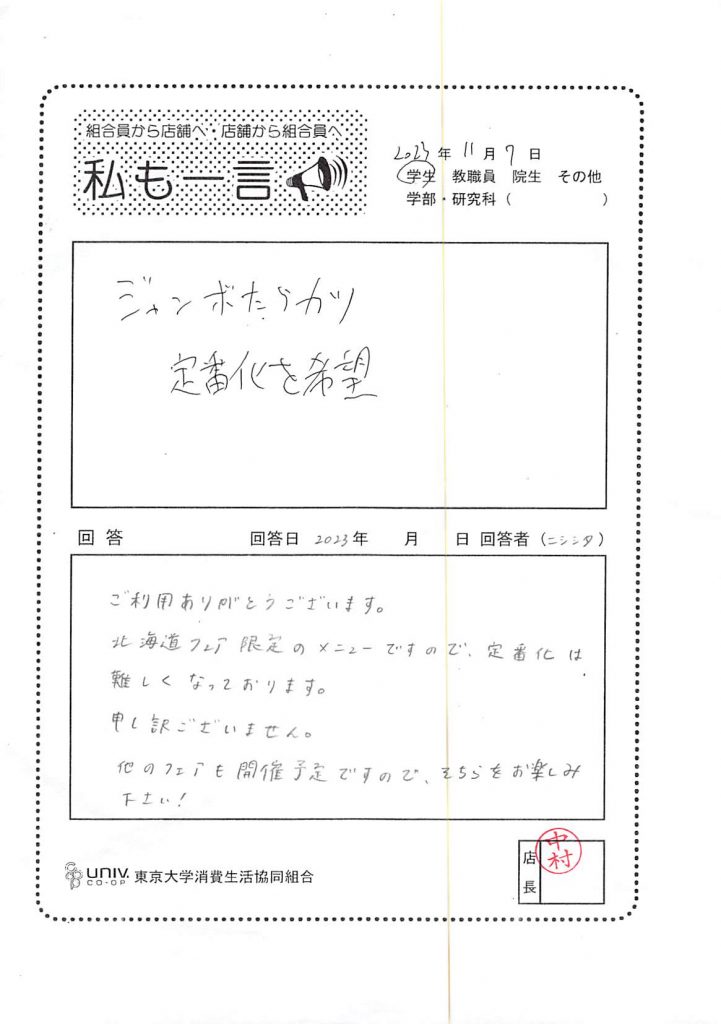 組合員から店舗へ・店舗から組合員へ
私も一言
2023年 11月 7日
学生 教職員 院生 その他
学部・研究科( )
ジャンボたらカツ
定番化を希望
回答 回答日 2023年 月 日 回答者(ニシシタ)
ご利用ありがとうございます。
北海道フェア限定のメニューですので、定番化は
難しくなっております。
申し訳ございません。
他のフェアも開催予定ですので、そちらをお楽しみ
下さい!
UNIV. CO-OP 東京大学消費生活協同組合
店長
中村